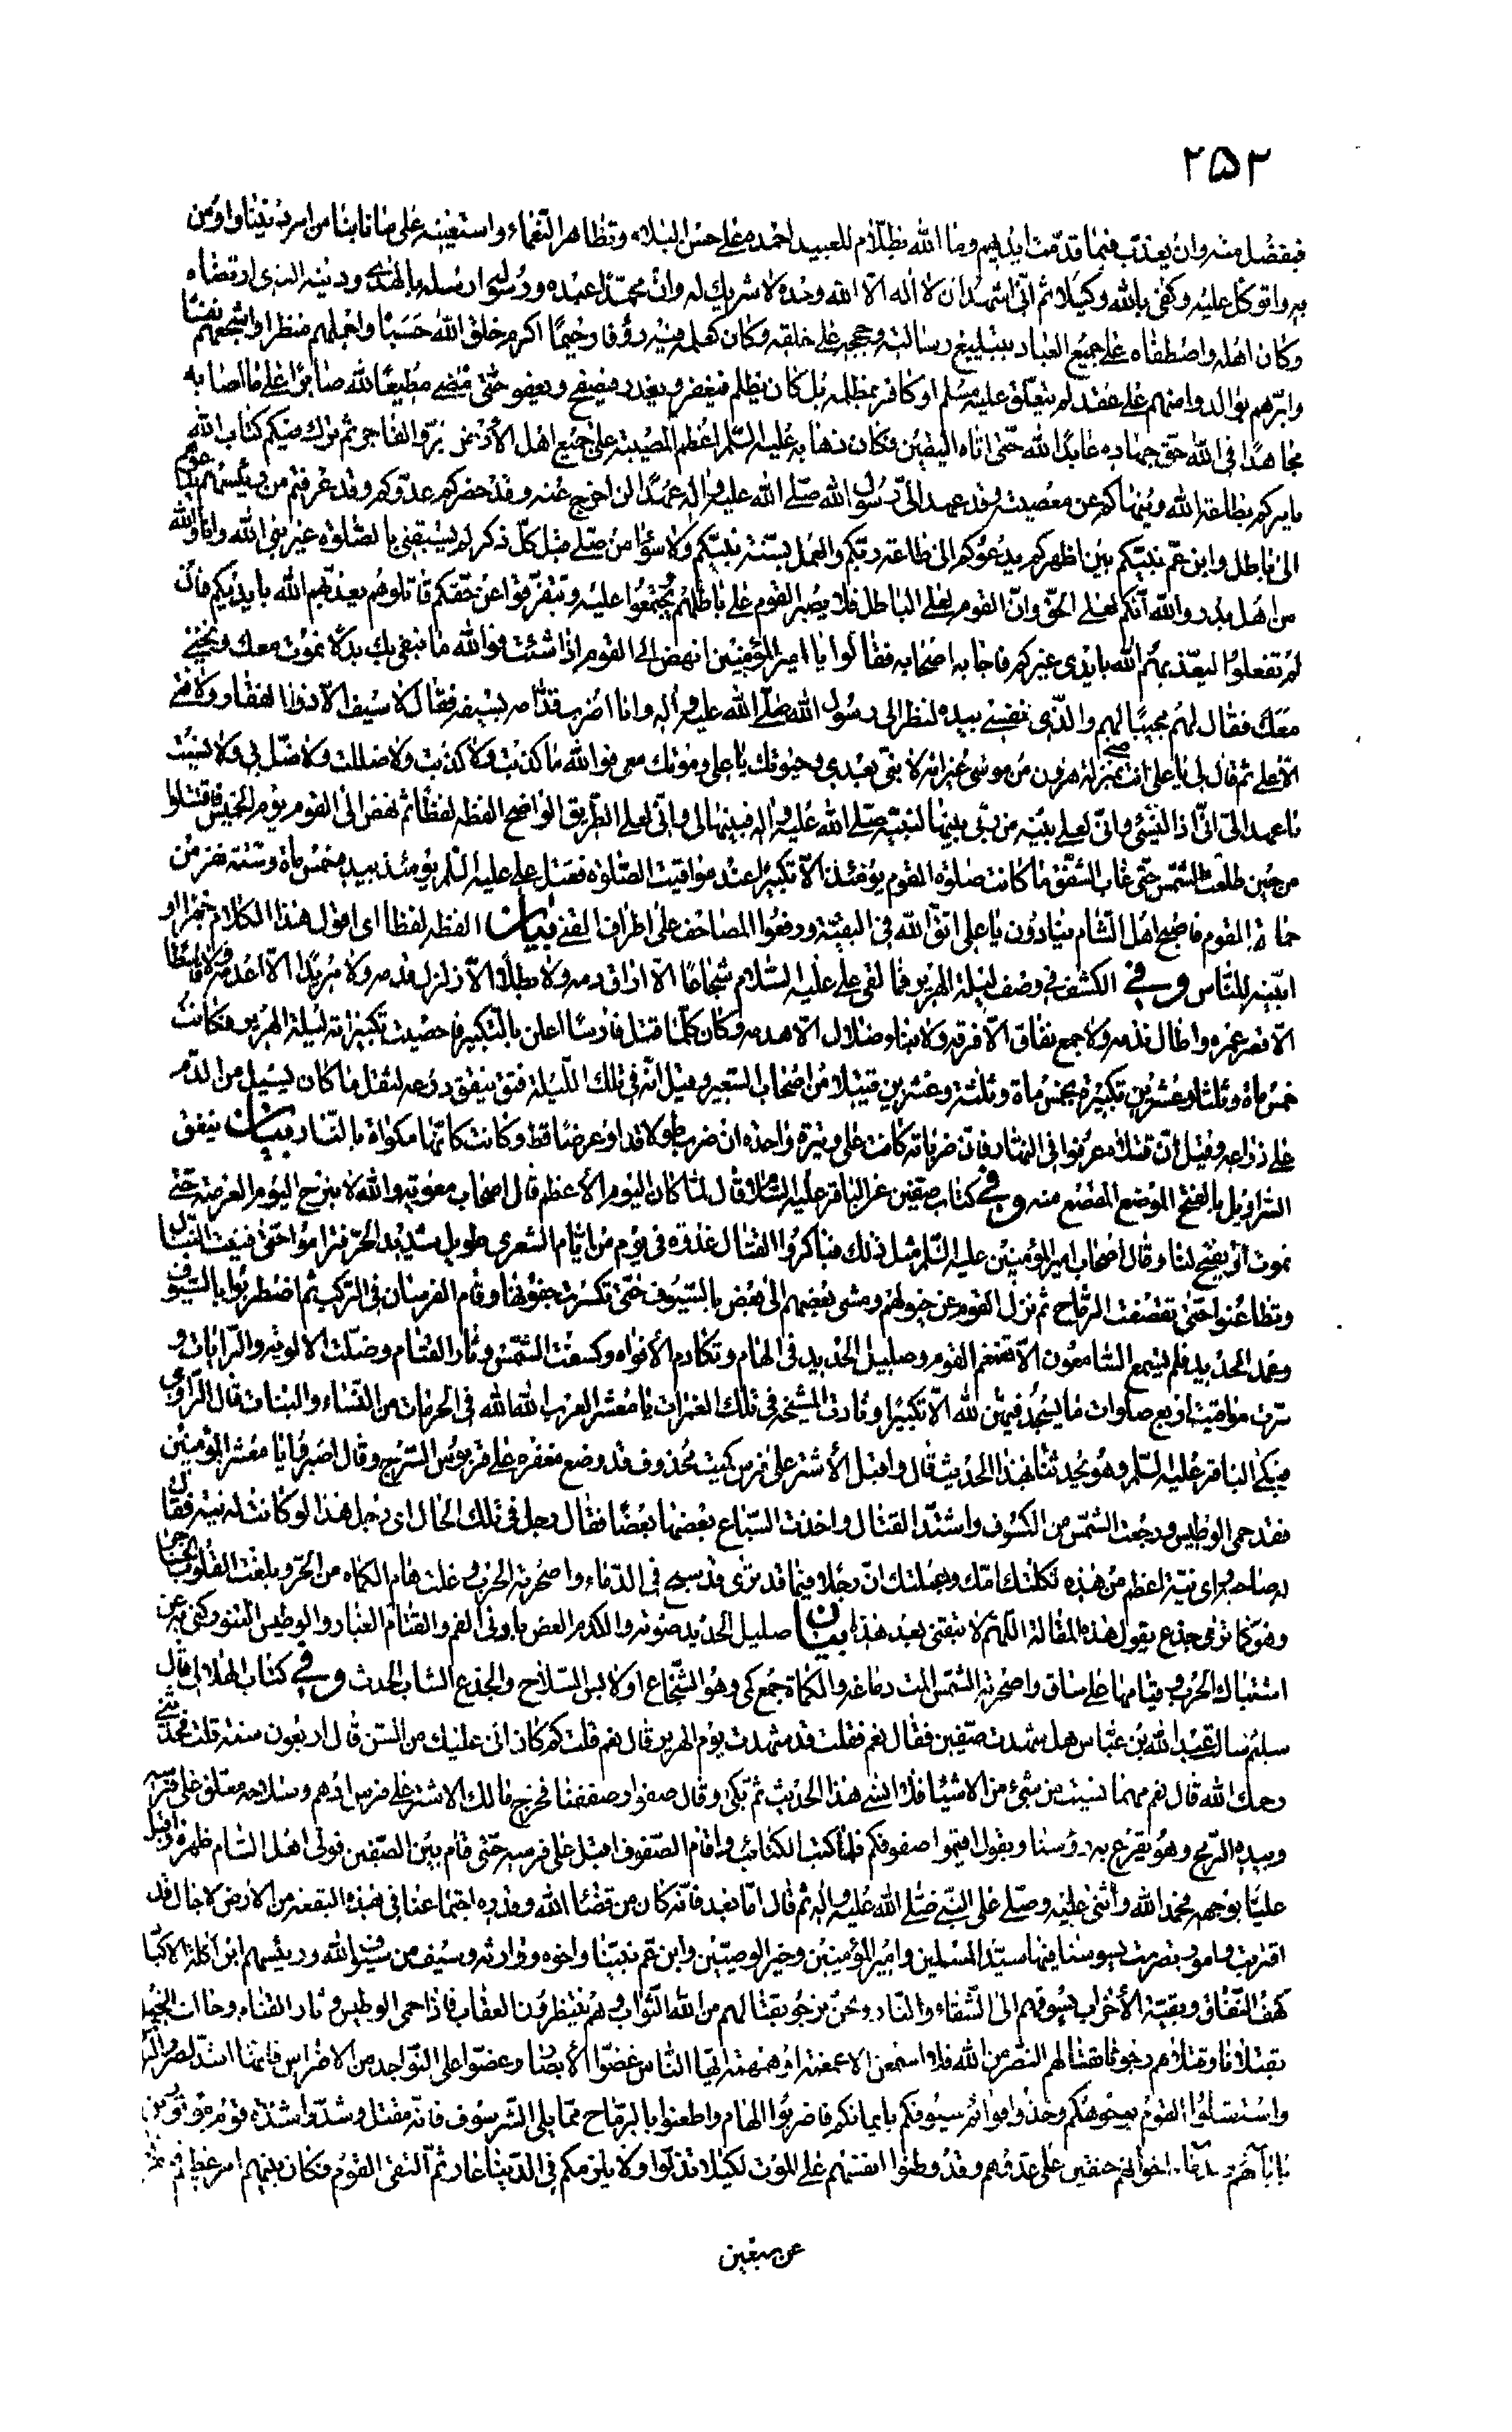 ٢٥٢
فبفضل منه وان يعذب فبما قدمت ايديهم وما الله بظلام للعبيد احمده على حسن البلاء وتظاهر النعماء واستعينه على ما نابنا من امر دنيانا واومن
به واتوكل عليه وكفى بالله وكيلا ثم انى اشهد ان لا اله الا الله وحده لا شريك له وان محمدا عبده ورسوله ارسله بالهدى ودينه الذى ارتضاه
وكان اهله واصطفاه على جميع العباد بتبليغ رسالته وحججه على خلقه وكان كعلمه فيه رؤفا رحيما اكرم خلق الله حسبا واجملهم منظرا واشجعهم نفسا
وابرهم بوالد وامنهم على عقد لم يتعلق عليه مسلم او كافر بمظلمة بل كان يظلم فيغفر ويقدر فيصفح ويعفو حتى مضى مطيعا لله صابرا على ما اصابه
مجاهدا فى الله حق جهاده عابدا لله حتى اتاه اليقين فكان ذهابه عليه السلم اعظم المصيبة على جميع اهل الارض البر والفاجر ثم ترك فيكم كتاب الله
يامركم بطاعة الله وينهاكم عن معصيته وقد عهد الى رسول الله صلى الله عليه واله عهدا لن اخرج عنه وقد حضركم عدوكم وقد عرفتم من رئيسهم يدعوهم
الى باطل وابن عم نبيكم بين اظهركم يدعوكم الى طاعة ربكم والعمل بسنة نبيكم ولا سواء من صلى قبل كل ذكر لم يسبقنى بالصلوة غير نبى الله وانا والله
من اهل بدر والله انكم لعلى الحق وان القوم لعلى الباطل فلا يصبر القوم على باطلهم يجتمعوا عليه وتتفرقوا عن حقكم قاتلوهم يعذبهم الله بايديكم فان
لم تفعلوا ليعذبهم الله بايدى غيركم فاجابه اصحابه فقالوا يا امير المؤمنين انهض الى القوم اذا شئت فوالله ما نبغى بك بدلا نموت معك ونحيى
معك فقال لهم مجيبا لهم والذى نفسى بيده لنظر الى رسول الله صلى الله عليه واله وانا اضرب قدامه بسيفه فقال لا سيف الا ذو الفقار ولا فتى
الا على ثم قال لى يا على انت منى بمنزلة هرون من موسى غير انه لا نبى بعدى وحيوتك يا على وموتك معى فوالله ما كذبت ولا كذبت ولا ضللت ولا ضل بى ولا نسيت
ما عهد الى انى اذا لنسى وانى لعلى بينة من ربى بينها لنبيه صلى الله عليه واله فبينها لى وانى لعلى الطريق الواضح الفظه لفظا ثم نهض الى القوم يوم الخميس فاقتتلوا
من حين طلعت الشمس حتى غاب الشفق ما كانت صلوة القوم يومئذ الا تكبيرا عند مواقيت الصلوة فقتل على عليه السلم يومئذ بيده خمس ماة وستة نفر من
حماة القوم فاصبح اهل الشام ينادون يا على اتق الله فى البقية ورفعوا المصاحف على اطراف القنى بيان الفظه لفظا اى اقول هذا الكلام جهرا او
ابينه للناس وفى الكشف فى وصف ليلة الهرير فما لقى على عليه السلام شجاعا الا اراق دمه ولا بطلا الا زلزل قدمه ولا مريدا الا اعدمه ولا قاسطا
الا قصر عمره واطال ندمه ولا جمع نفاق الا فرقه ولا بناء ضلال الا هدمه وكان كلما قتل فارسا اعلن بالتكبير فاحصيت تكبيراته ليلة الهرير فكانت
خمس ماة وثلثا وعشرين تكبيرة بخمس ماة وثلثة وعشرين قتيلا من اصحاب السعير وقيل انه فى تلك الليلة فتق نيفق درعه لثقل ما كان يسيل من الدم
على ذراعه وقيل ان قتلاه عرفوا فى النهار فان ضرباته كانت على وتيرة واحدة ان ضرب طولا قد او عرضا قط وكانت كانها مكواة بالنار بيان نيفق
السراويل بالفتح الموضع المتسع منه وفى كتاب صفين عن الباقر عليه السلام قال لما كان اليوم الاعظم قال اصحاب معوية والله لا نبرح اليوم العرصة حتى
نموت او يفتح لنا وقال اصحاب امير المؤمنين عليه السلم مثل ذلك فباكروا القتال غدوة فى يوم من ايام الشعرى طويل شديد الحر فتراموا حتى فنيت النبال
وتطاعنوا حتى تقصفت الرماح ثم نزل القوم عن خيولهم ومشى بعضهم الى بعض بالسيوف حتى تكسرت جفونها وقام الفرسان فى الركب ثم اضطربوا بالسيوف
وعمد الحديد فلم يسمع السامعون الا تغمغم القوم وصليل الحديد فى الهام وتكادم الافواه وكسفت الشمس وثار القتام وضلت الالوية والرايات و
مرت مواقيت اربع صلوات ما يسجد فيهن لله الا تكبيرا ونادت المشيخة فى تلك الغمرات يا معشر العرب الله الله فى الحرمات من النساء والبنات قال الراوى
فبكى الباقر عليه السلم وهو يحدثنا بهذا الحديث قال واقبل الاشتر على فرس كميت محذوف قد وضع مغفره على قربوس السرج وقال اصبروا يا معشر المؤمنين
فقد حمى الوطيس ورجعت الشمس من الكسوف واشتد القتال واخذت السباع بعضها بعضا فقال رجل فى تلك الحال اى رجل هذا لو كانت له نية فقال
له صاحبه واى نية اعظم من هذه ثكلتك امك وهبلتك ان رجلا فيما قد ترى قد سبح فى الدماء واضجرته الحرب وغلت هام الكماة من الحر وبلغت القلوب الحناجر
وهو كما ترى جذع يقول هذه المقالة اللهم لا تبقنى بعد هذا بيان صليل الحديد صوته والكدم العض بادنى الفم والقتام الغبار والوطيس التنور وكنى به عن
اشتباك الحرب وقيامها على ساق واصحرته الشمس المت دماغه والكماة جمع كمى وهو الشجاع او لابس السلاح والجذع الشاب الحدث وفى كتاب الهلالى قال
سليم سالت عبد الله بن عباس هل شهدت صفين فقال نعم فقلت قد شهدت يوم الهرير قال نعم قلت كم كان اتى عليك من السن قال اربعون سنة قلت فحدثنى
رحمك الله قال نعم مهما نسيت من شىء من الاشياء فلا انسى هذا الحديث ثم بكى وقال صفوا وصففنا فخرج مالك الاشتر على فرس ادهم وسلاحه معلق على فرسه
وبيده الرمح وهو يقرع به رؤسنا ويقول اقيموا صفوفكم فلما كتب الكتائب واقام الصفوف اقبل على فرسه حتى قام بين الصفين فولى اهل الشام ظهره واقبل
علينا بوجهه فحمد الله واثنى عليه وصلى على النبى صلى الله عليه واله ثم قال اما بعد فانه كان من قضاء الله وقدره اجتماعنا فى هذه البقعة من الارض لاجال قد
اقتربت وامور تصرمت يسوسنا فيها سيد المسلمين وامير المؤمنين وخير الوصيين وابن عم نبينا واخوه ووارثه وسيف من سيوف الله ورئيسهم ابن اكلة الاكباد
كهف النفاق وبقية الاحزاب يسوقهم الى الشقاء والنار ونحن نرجو بقتالهم من الله الثواب وهم ينتظرون العقاب فاذا حمى الوطيس وثار القتام وجالت الخيل
بقتلانا وقتلاهم رجونا بقتالهم النصر من الله فلا اسمعن الا غمغمة او همهمة ايها الناس غضوا الابصار وعضوا على النواجد من الاضراس فانها اشد لصر الراس
واستقبلوا القوم بوجوهكم وخذوا قوائم سيوفكم بايمانكم فاضربوا الهام واطعنوا بالرماح مما يلى الشرسوف فانه مقتل وشدوا شدة قوم موتورين
بابائهم وبدماء اخوانهم حنقين على عدوهم وقد وطنوا انفسهم على الموت لكيلا تذلوا ولا يلزمكم فى الدنيا عار ثم التقى القوم فكان بينهم امر عظيم فتفرقوا
عن سبعين